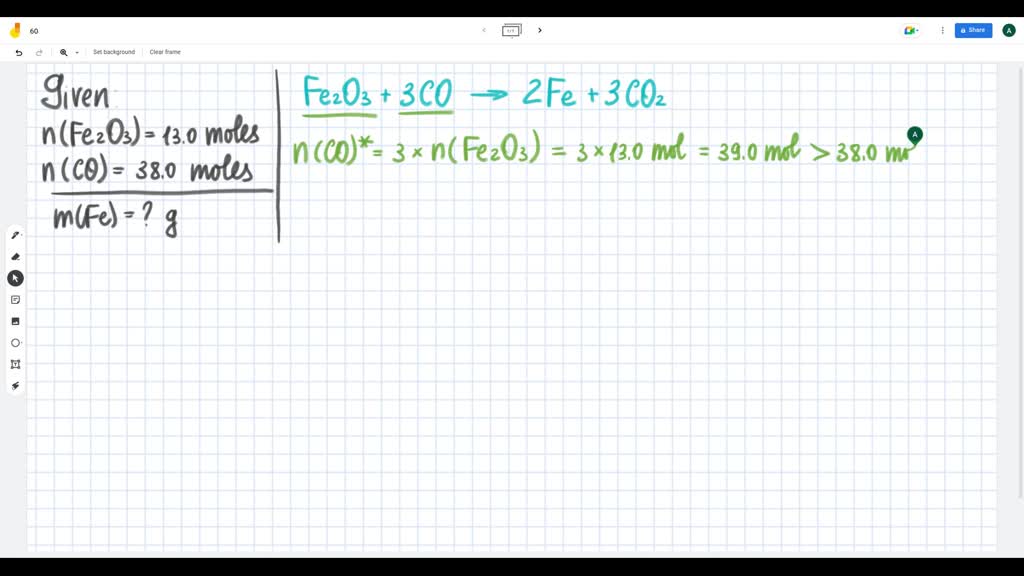 60.
1/1
Share
A
Set background
Clear frame
Given
n(Fe₂O₃) = 13.0 moles
n(CO) = 38.0 moles
m(Fe) = ? g
Fe₂O₃ + 3CO → 2Fe + 3CO₂
n(CO)* = 3 × n(Fe₂O₃) = 3 × 13.0 mol = 39.0 mol > 38.0 mo
A